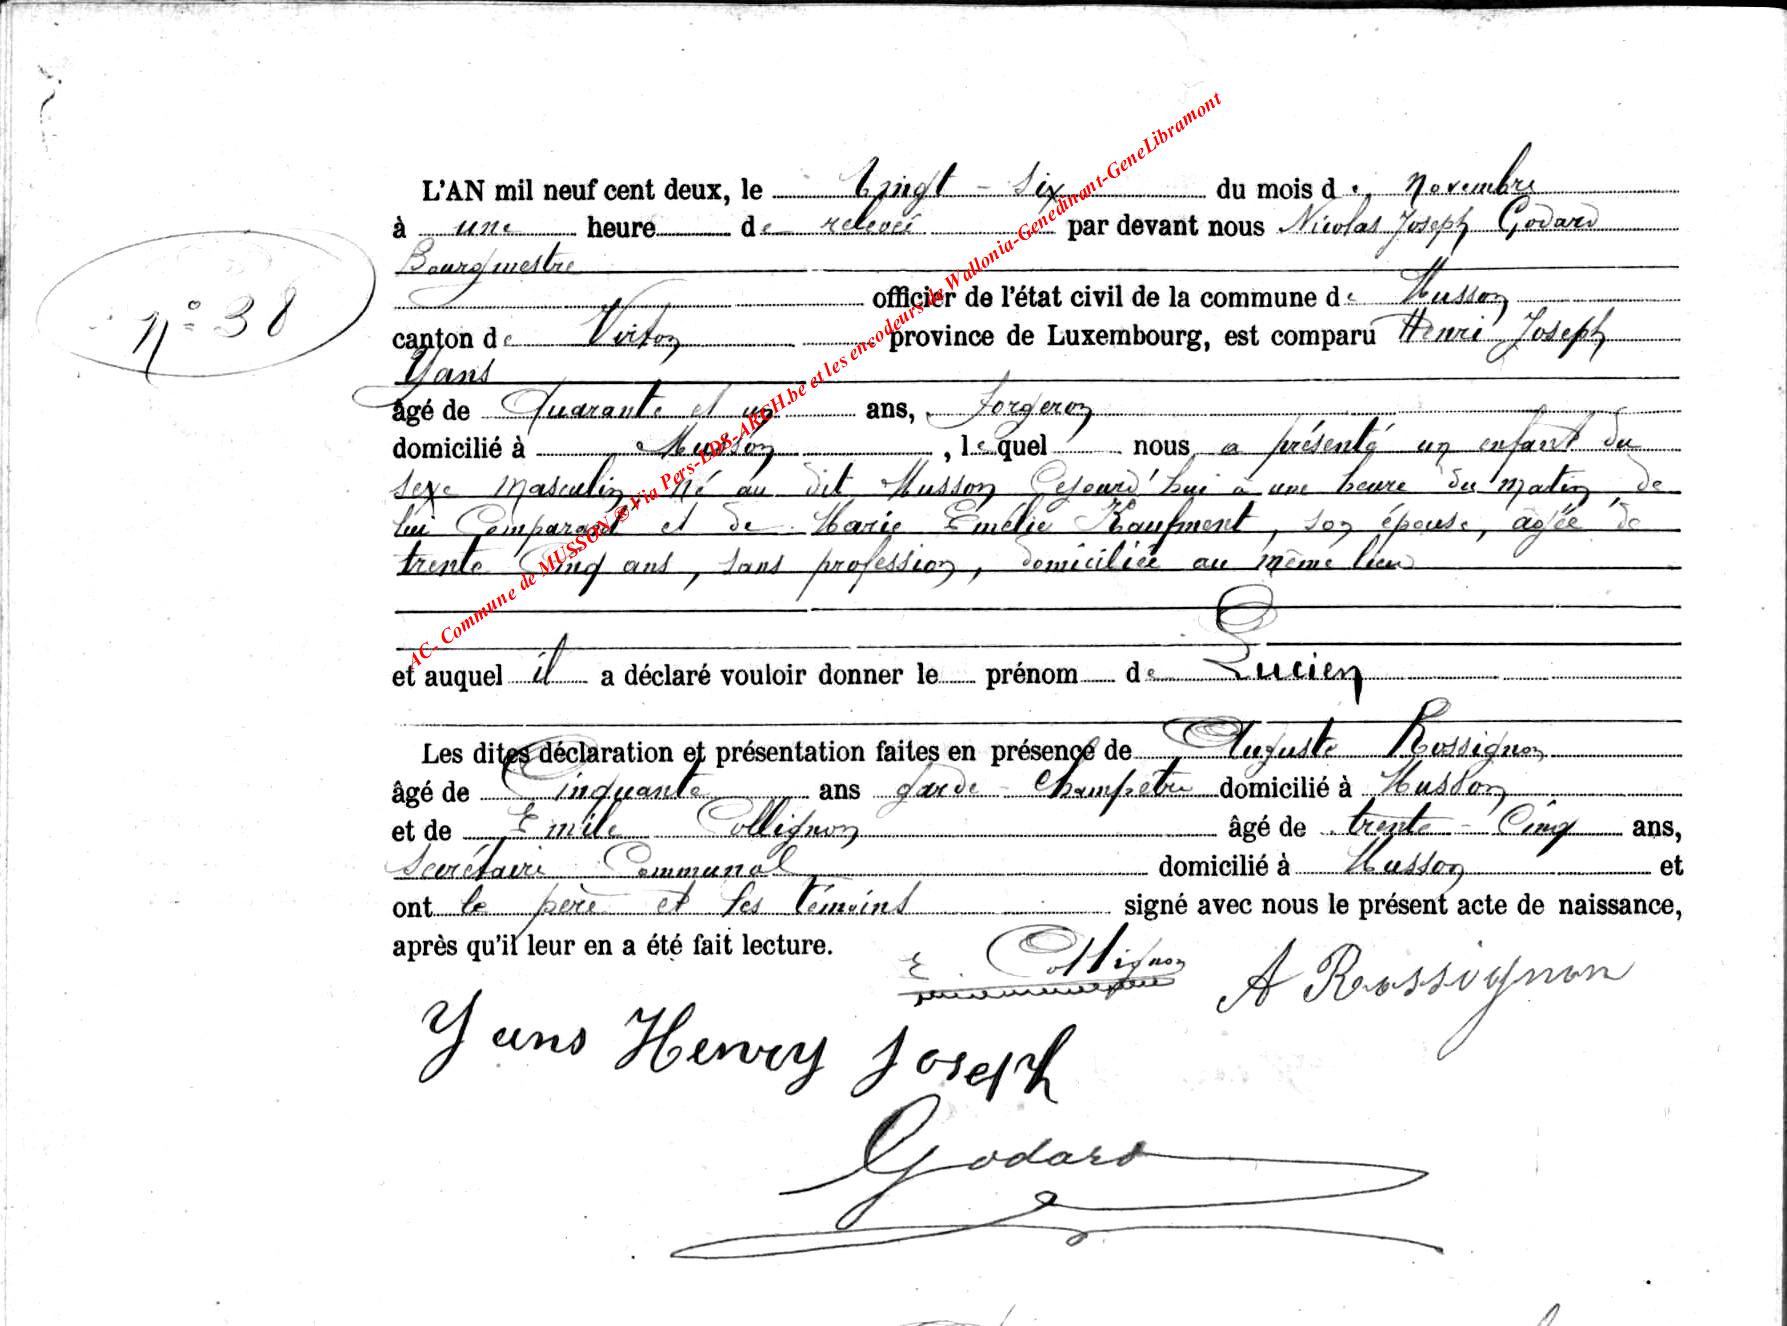 L'AN mil neuf cent deux, le Vingt - Six du mois de Novembre
à une heure de relevée par devant nous Nicolas Joseph Godard
Bourgmestre
officier de l'état civil de la commune de Musson
N° 38
canton de Virton province de Luxembourg, est comparu Henri Joseph
Yans
âgé de Quarante et un ans, forgeron
domicilié à Musson, lequel nous a présenté un enfant du
sexe masculin, né au dit Musson Cejourd'hui à une heure du matin, de
lui Comparant et de Marie Emélie Kaufment, son épouse, âgée de
trente Cinq ans, sans profession, domiciliée au même lieu
et auquel il a déclaré vouloir donner le prénom de Lucien
Les dites déclaration et présentation faites en présence de Auguste Rossignon
âgé de Cinquante ans garde - Champêtre domicilié à Musson
et de Emile Collignon âgé de trente - Cinq ans,
Secrétaire Communal domicilié à Musson et
ont le père et les témoins signé avec nous le présent acte de naissance,
après qu'il leur en a été fait lecture.
E. Collignon A Rossignon
Yans Henry Joseph
Godard
AC- Commune de MUSSON ® Via Pers-LDS-ARCH.be et les encodeurs de Wallonia-Genedinant-GeneLibramont